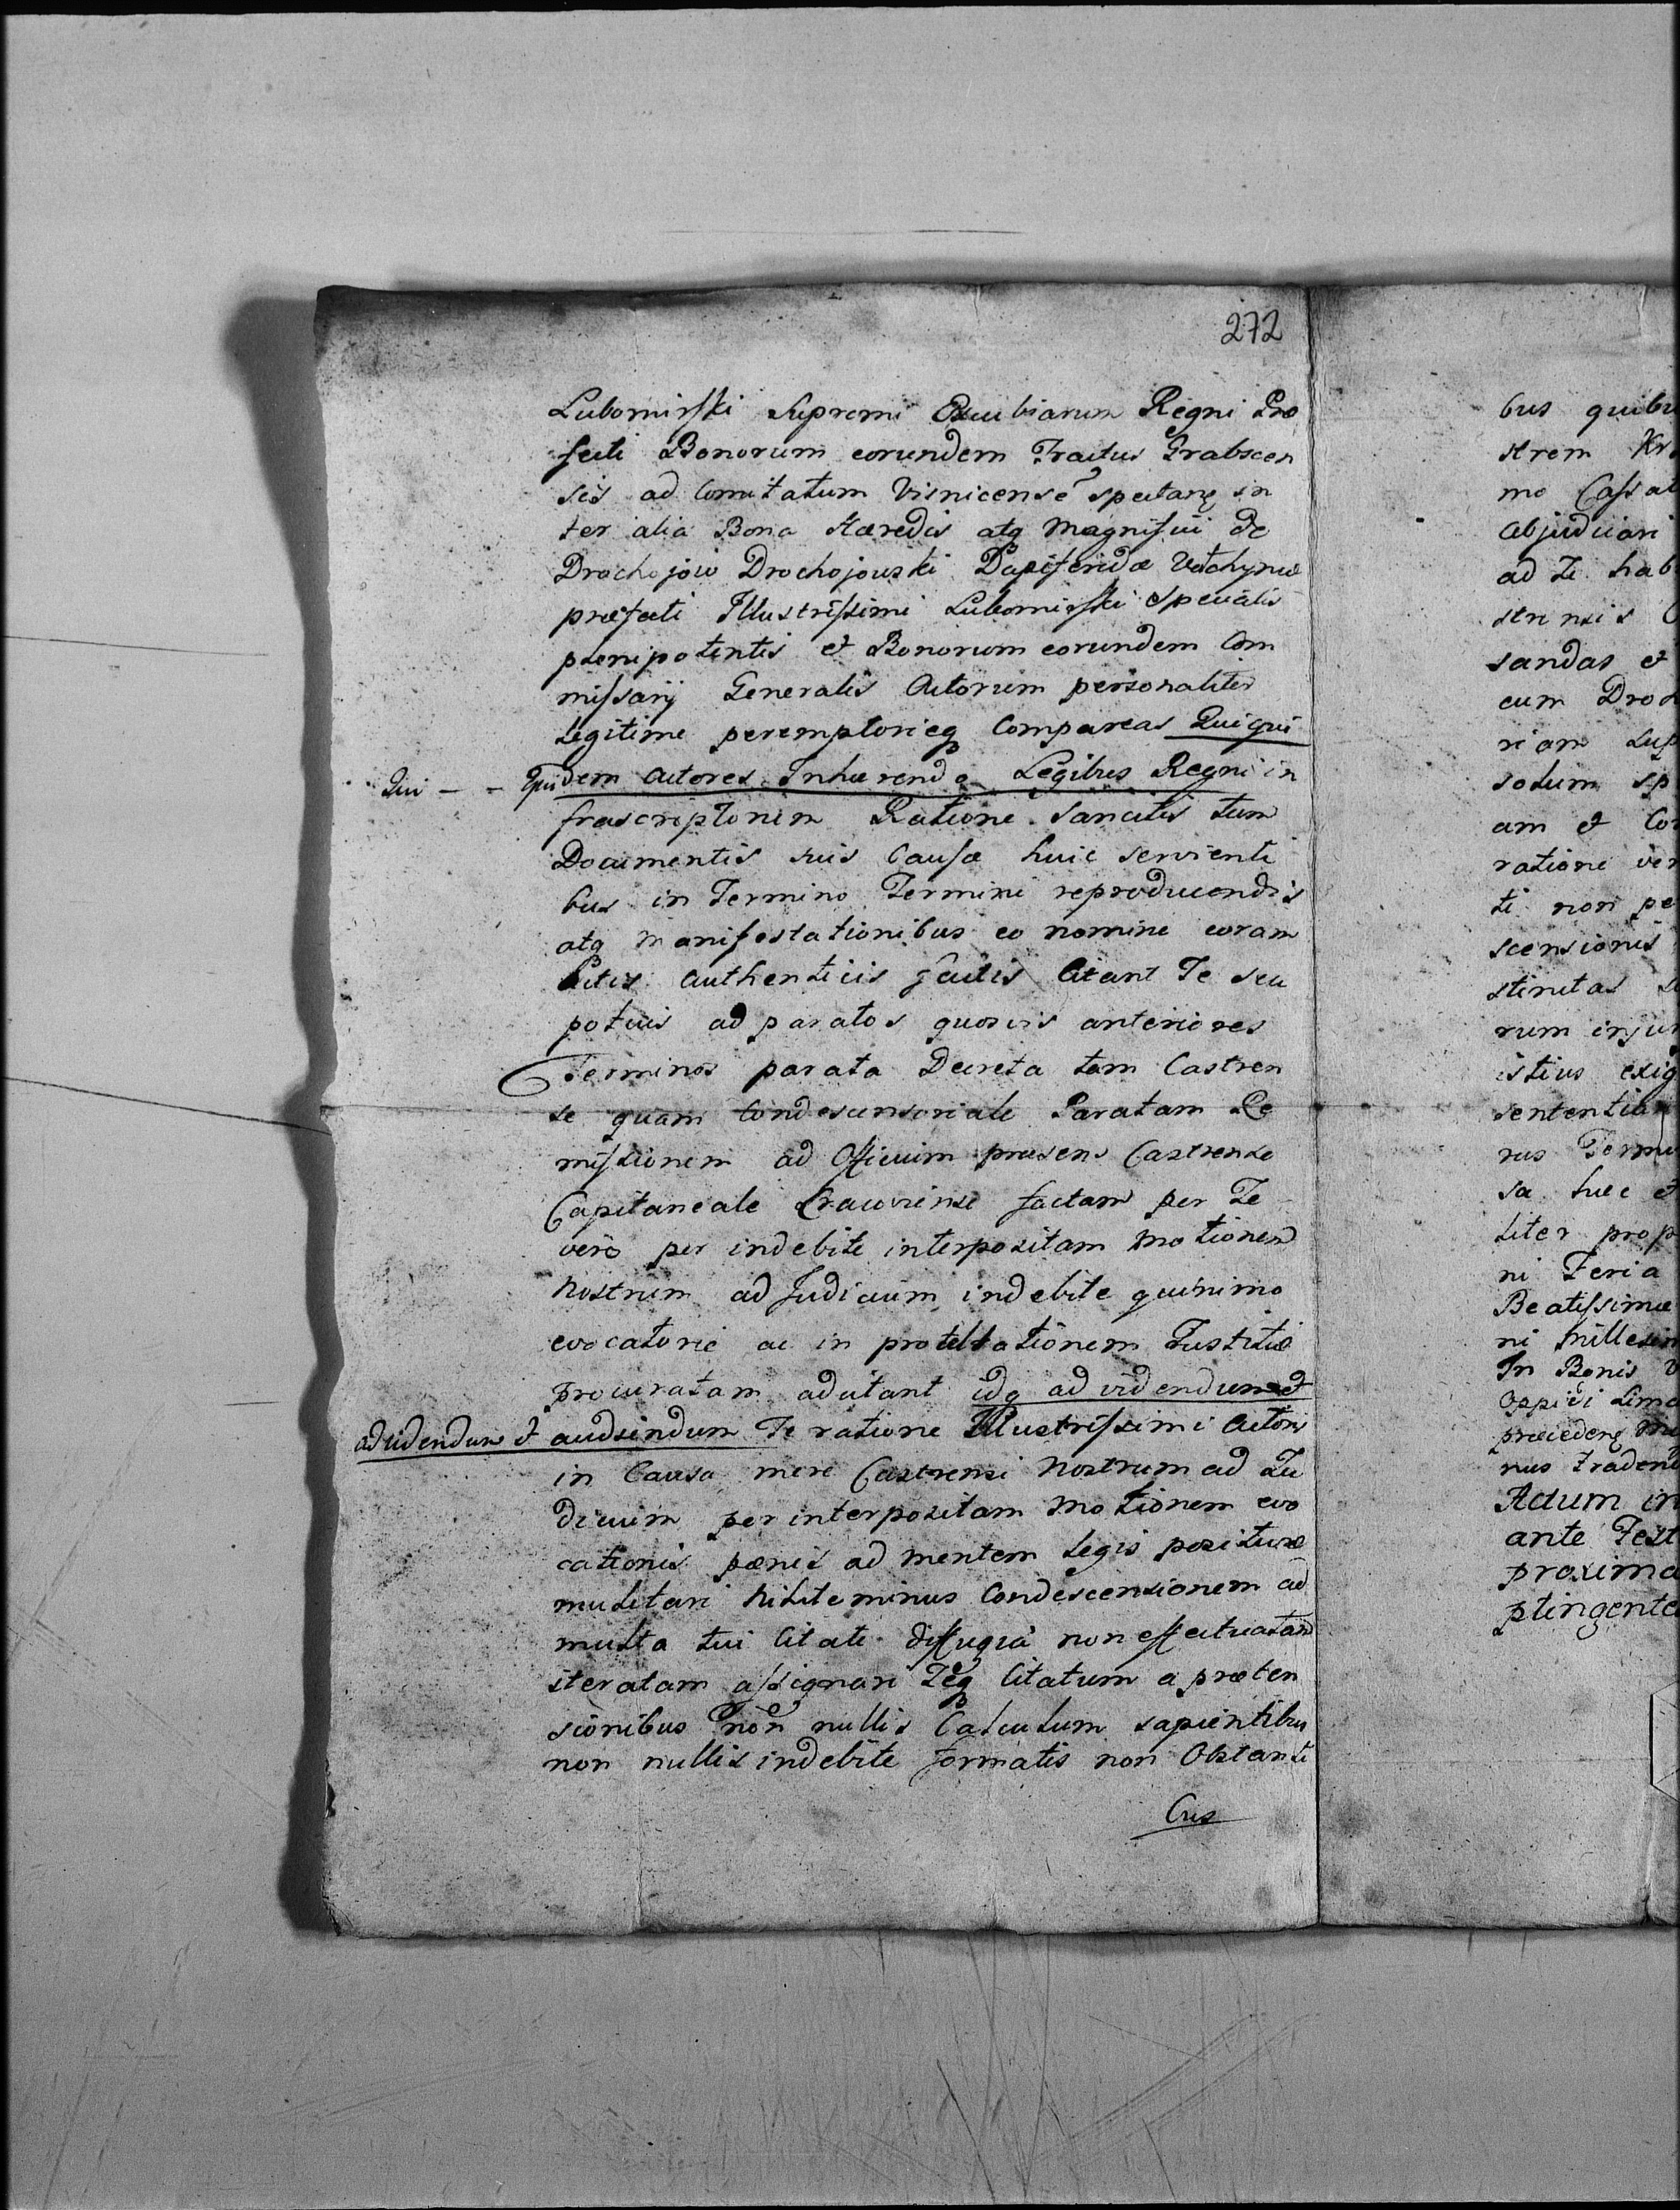 272
Lubomirſki Supremi Excubiarum Regni Præ
fecti Bonorum eorundem Tractus Grabscen
sis ad Comitatum Visnicensē spectanę in
ter alia Bona Hæredis atq Magnifici de
Drochojow Drochojowski Dapiferidæ
præfati Illustriſsimi Lubomirſki Specialis
plenipotentis et Bonorum eorundem Com
miſsarij Generalis Actorum personaliter
Legitime peremptorieq Compareas Quiqui
Qui - - Quidem Actores Inhærendo Legibus Regni in
frascriptorum Ratione Sancitis tum
Documentis suis Causæ huic servienti
bus in Termino Termini reproducendis
atq Manifestationibus eo nomine coram
Actis Authenticis factis Citant Te seu
potius ad paratos quosvis anteriores
Terminos parata Decreta tam Castren
se quam Condescensoriale Paratam Re
miſsionem ad Officium præsens Castrense
Capitaneale Cracoviense factam per Te
vero per indebite interpositam Motionem
Nostrum ad Judicium indebite quinimo
evocatorie ac in protelationem Justitiæ
procuratam adcitant idq ad videndum et
ad videndum et audiendum Te ratione Illustriſsimi Actoris
in Causa mere Castrensi Nostrum ad Ju
dicium per interpositam Motionem evo
cationis pœnis ad mentem Legis positivæ
mulctari nihileminus Condescensionem ad
multa tui Citati diffugia non effectuatam
iteratam aſsignari Teq Citatum a præten
sionibus non nullis Calculum sapientibus
non nullis indebite formatis non Obstanti
Cus
bus quibu
strem Kr
mo Caſsat
abjudicari
ad Te hab
strensis
sandas et
cum Droh
riam sup
solum sp
am et Con
ratione ver
ti non pe
scensionis
stinctas
rum inju
istius exig
sententia
rus Termi
sa huec et
liter prop
ni Feria
Beatiſsimæ
ni Millesim
In Bonis
Oppidi Lima
præcedenę Mi
nus tradend
Actum in
ante Fest
proxima
ptingente